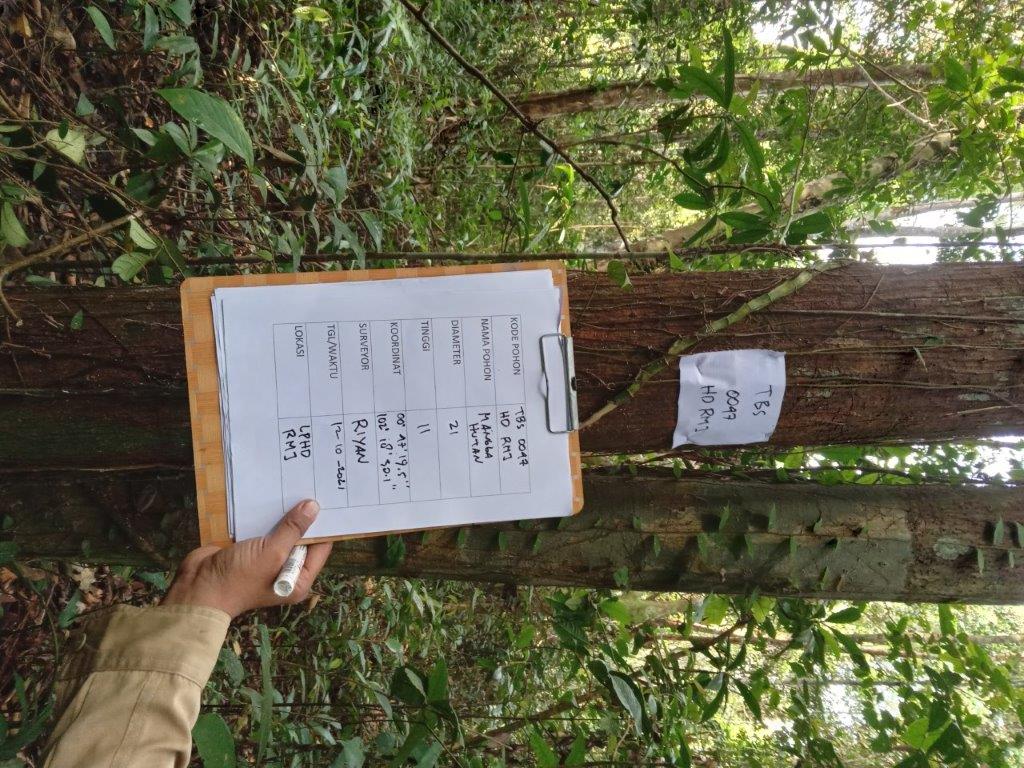 TBS
0047
HD RMJ
KODE POHON TBS 0047
HD RMJ
NAMA POHON MANGGA
HUTAN
DIAMETER 21
TINGGI 11
KOORDINAT 00° 47' 19.5"
102° 18' 50.1"
SURVEYOR RIYAN
TGL/WAKTU 12-10-2021
LOKASI LPHD
RMJ